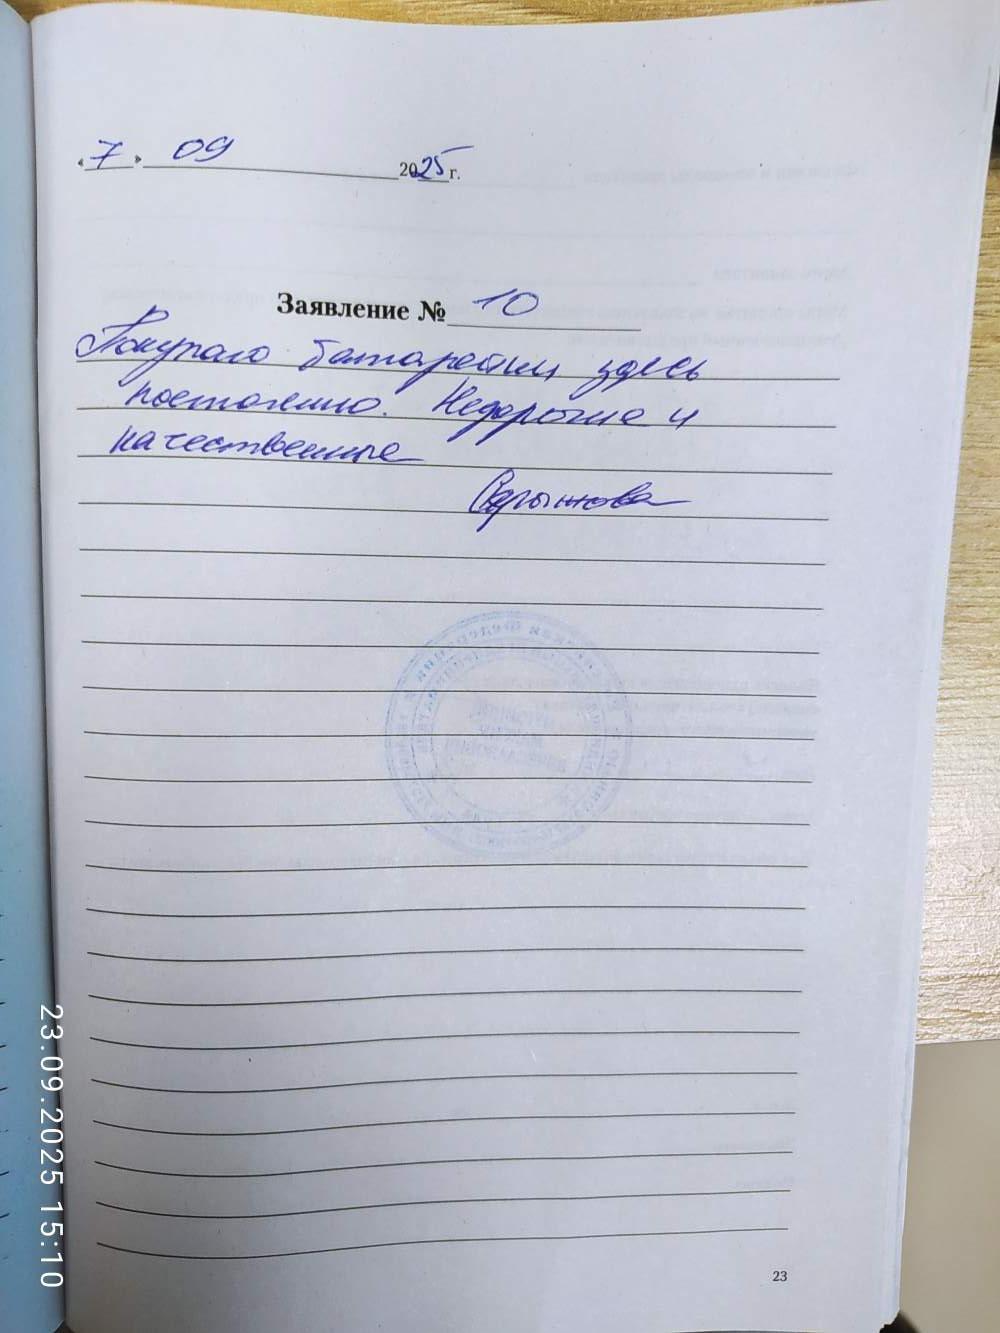 «7» 09 2025 г.
Заявление № 10
Покупаю батарейки здесь
постоянно. Недорогие и
качественные
23
23.09.2025 15:10